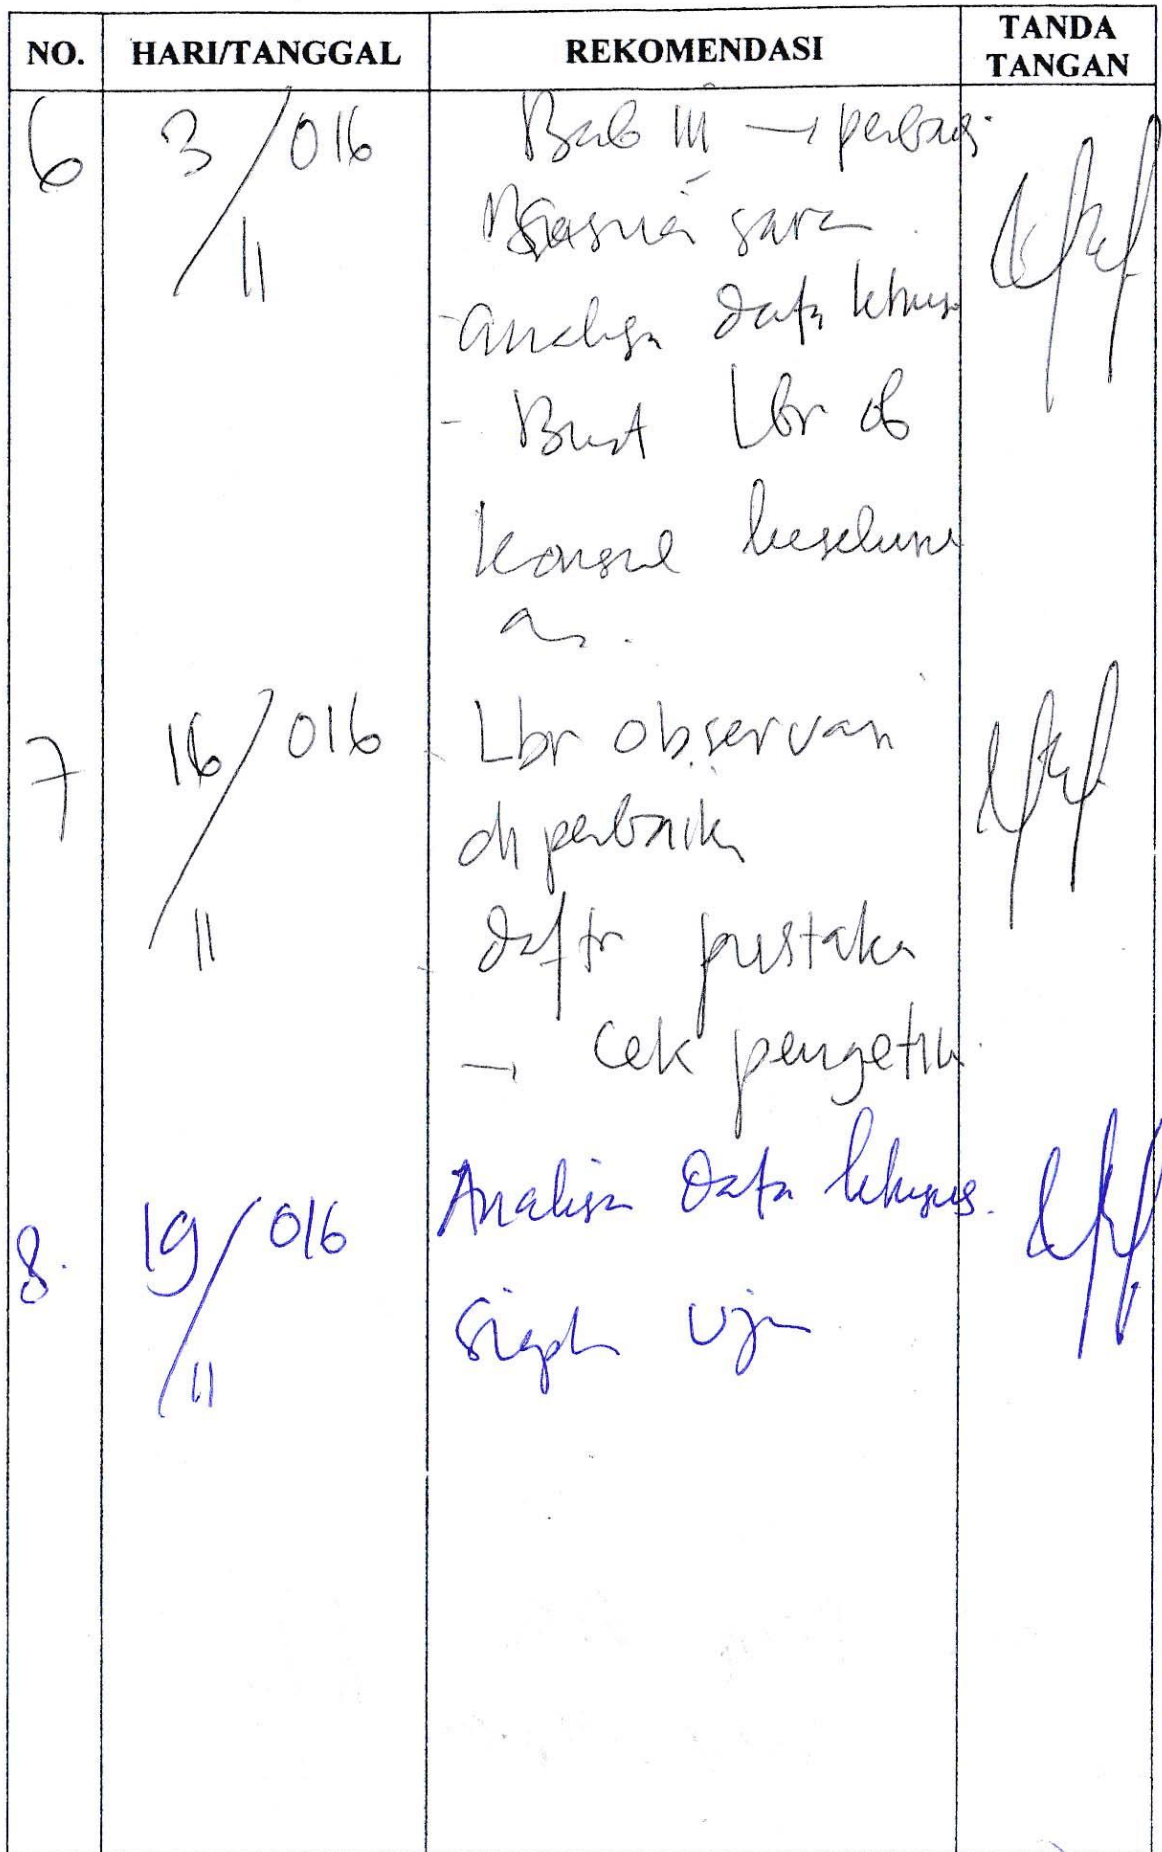 NO. HARI/TANGGAL REKOMENDASI TANDA TANGAN
6 3/11 016 Bab III → perbaiki
saran
- analisa data khusus
- Buat Lbr ob
Konsul keseluruh
an.
7 16/11 016 Lbr observasi
diperbaiki
daftr pustaka
→ Cek pengetik
8. 19/11 016 Analisa Data khusus.
Siapk Ujn